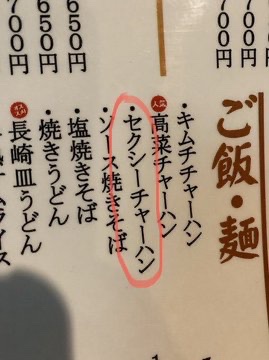 700円
700円
650円
650円
700円
700円
ご飯・麺
・キムチチャーハン
人気 高菜チャーハン
・セクシーチャーハン
・ソース焼きそば
・塩焼きそば
・焼きうどん
オススメ 長崎皿うどん
ムライス